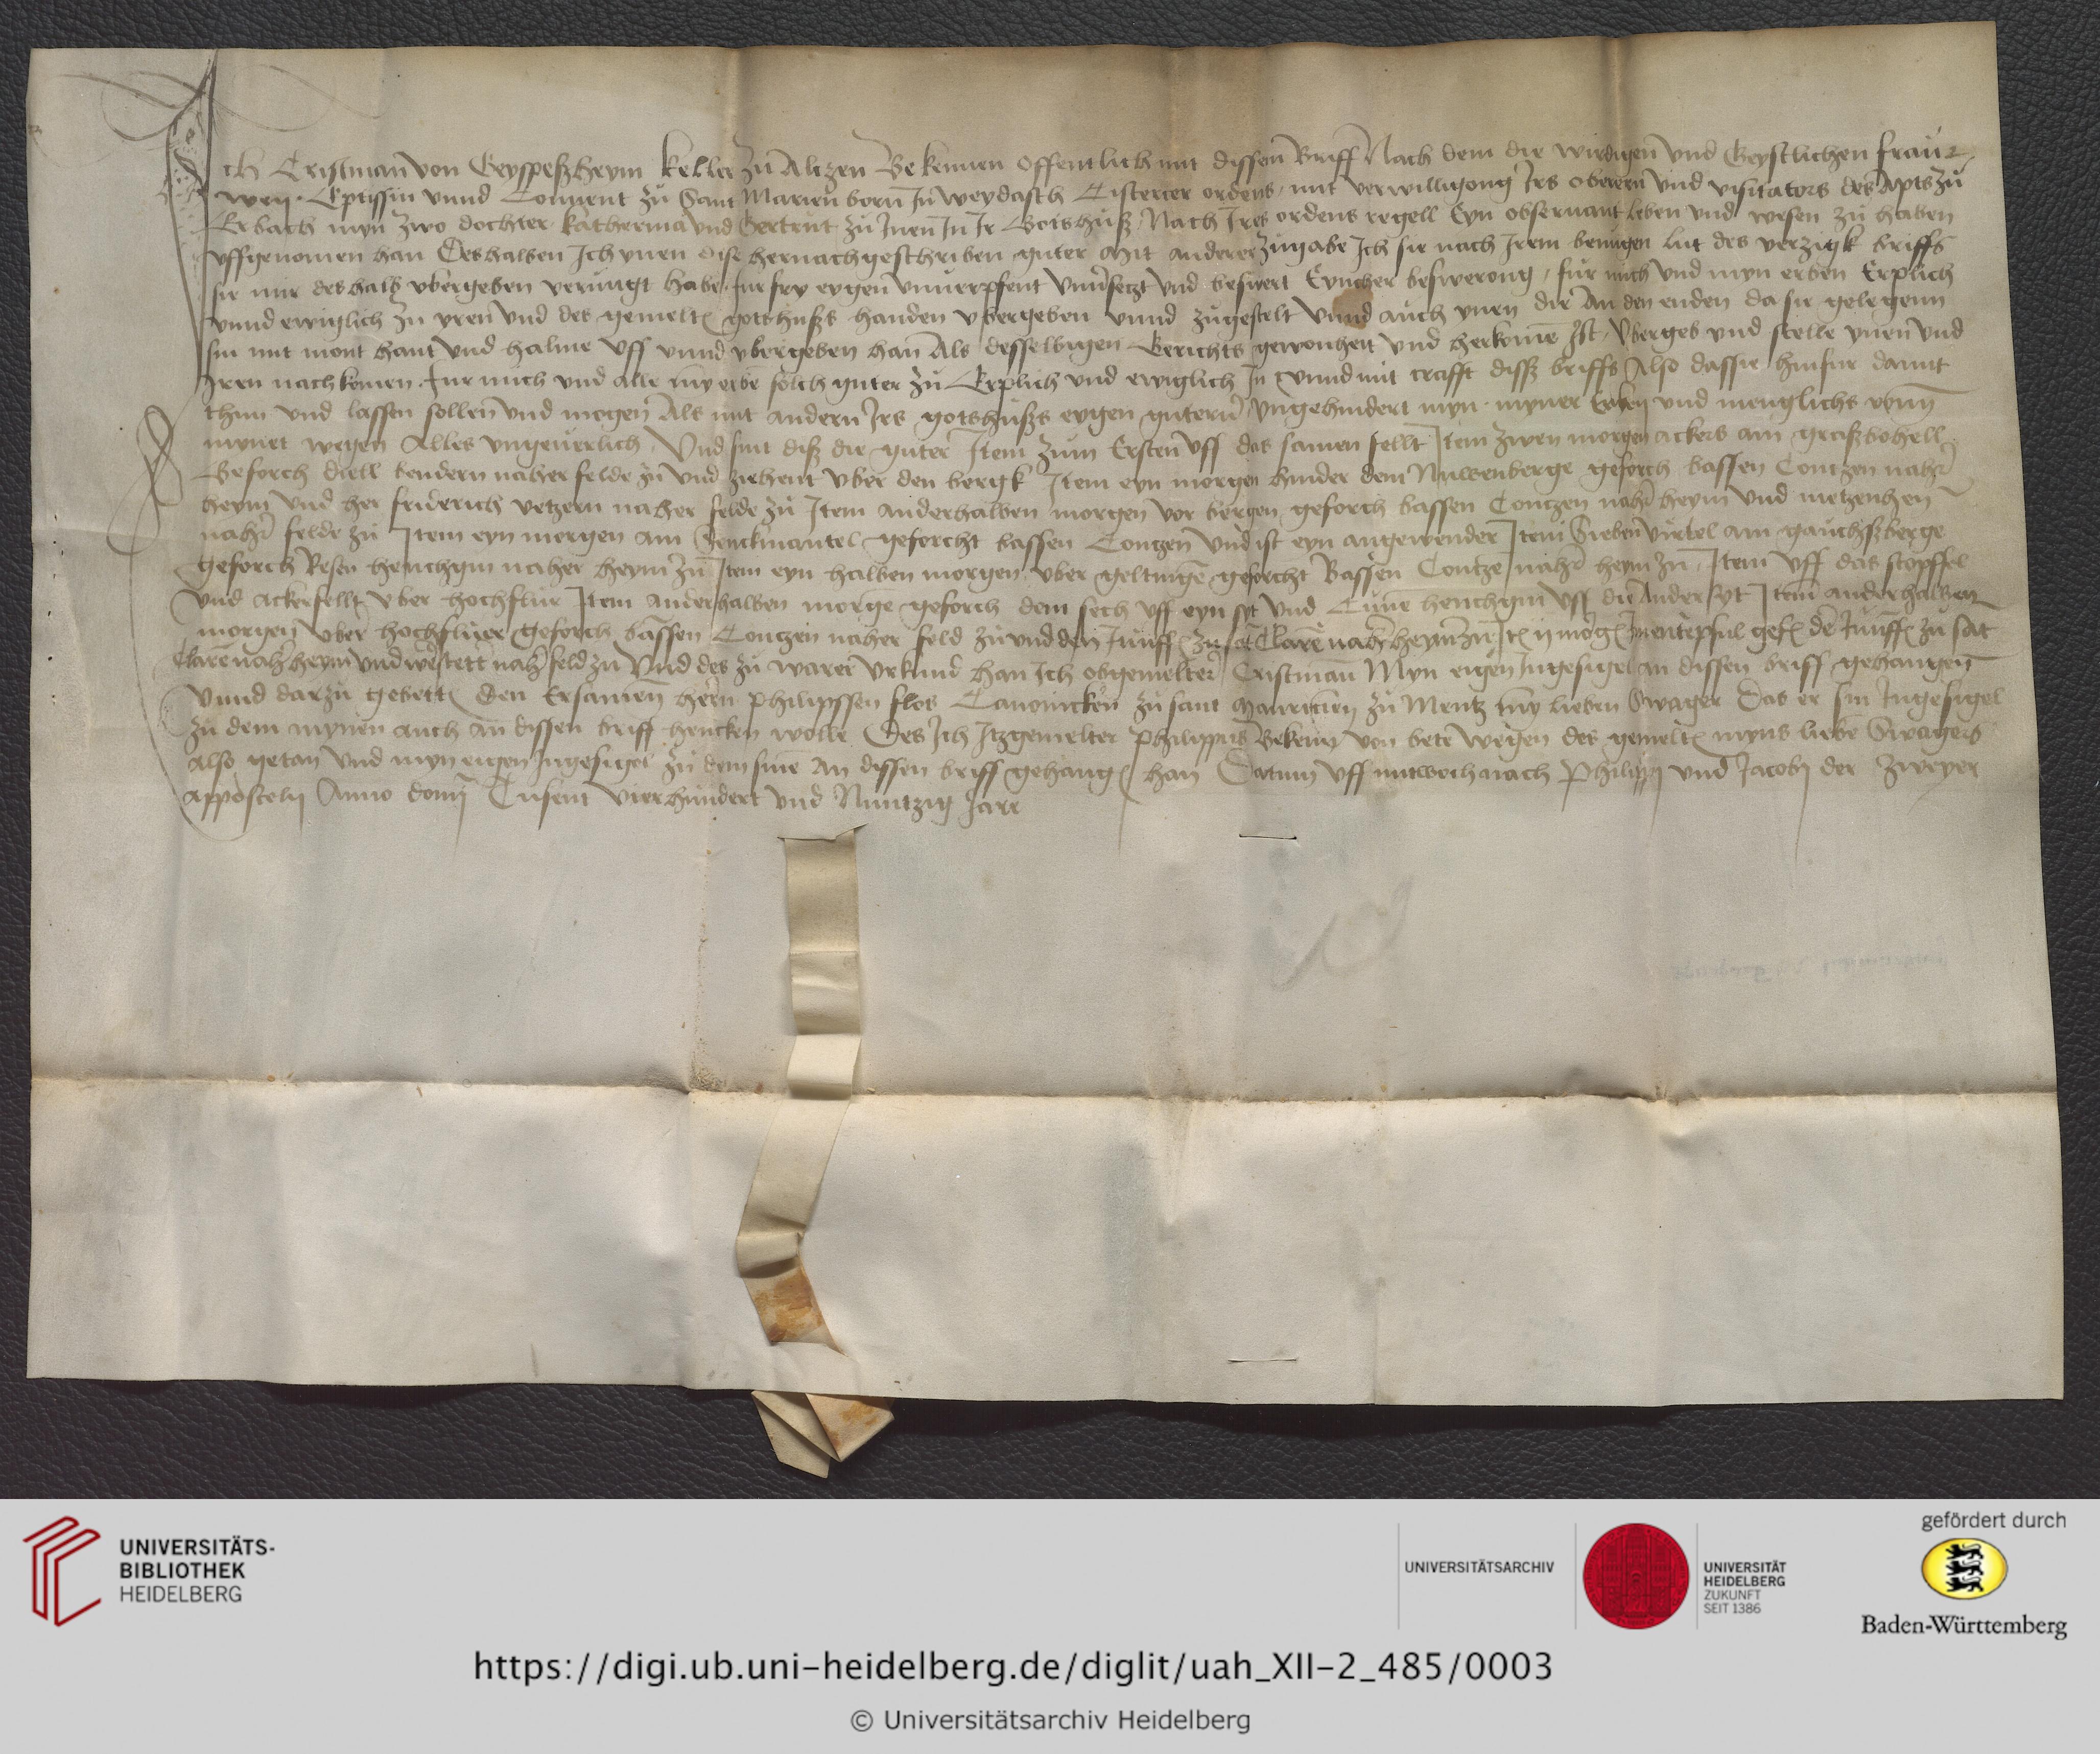 Ich Cristman von Geyspeßheym keller zu Altzen Bekennen offentlich mit dissen Briff Nach dem die wirdigen und Geystlichen frauw-
wen Eptissin unnd Convent zu Sant Marien born Jn weydasch Cistercier ordens mit verwilligong Jrs oberern und visitators des Apts zu
Erbach myn zwo dochter katherina und Gertrut zu Jnen Jn Jr Gotshuß Nach Jres ordens regell Eyn observant leben und wesen zu haben
uffgenomen han Deshalben Jch ynen dise hernachgeschriben guter mit anderer zugabe Jch sie nach Jrem benugen lut des verzigk briffs
sie mir deshalb ubergeben vernugt habe fur fry eygen unverpfent unversetzt und beswert Eyncher beswerong fur mich und myn erben Erplich
unnd ewiglich zu yren und des gemelten gotshußs handen ubergeben unnd zugestelt unnd auch ynen die An den enden da sie gelegenn
sin mit mont hant und halme uff unnd ubergeben han Als desselbigen Gerichts gewonheit und herkomen Jst ubergeb und stelle ynen und
Jren nachkomen fur mich und alle myn erben solch guter zu Erplich und ewiglich Jn unnd mit crafft diß briffs Also das sie hinfur damit
thun und lassen sollen und mogen Als mit andern Jrs gotshußs eygen gutern ungehindert myn myner Erben und menglichs vonn
mynet wegen Alles ungeverlich Und sint diß die guter Jtem zum Ersten uff das samen fellt Jtem zwen morgen ackers am graßbohell
Geforch diell bendern naher felde zu und ziehent uber den bergk Jtem eyn morgen hinder dem Nuwenberge geforch bassen Contzen naher
heym und her friderich vetzern naher felde zu Jtem anderhalben morgen vor bergen geforch bassen Contzen naher heym und metzenhen
naher felde zu Jtem eyn morgen am Senckmantel geforcht bassen Contzen und ist eyn angewender Jtem Sieben virtel am gauchßberge
geforch Resen henchgin naher heym zu Jtem eyn halben morgen uber geltingen geforcht Bassen Contzen naher heym zu Jtem uff das stopffel
und ackerfellt uber hochflur Jtem anderhalben morgen geforch dem sech uff eyn syt und Cunen henchgin uff die Ander syt Jtem anderhalben
morgen uber hochfluer geforch bassen Contzen naher feld zu und den Junffern zu sant Claren naher heym zu Jtem ij morgen geforch den Junffern zu sant
Claren naher heym und naher feld zu Und des zu warer urkund han Jch obgemelter Cristman Myn eigen Jngesigel an dissen briff gehangen
unnd darzu gebetten den Ersamen hern philipssen flos Canonicken zu sant Mauricien zu Mentz myn lieben Swager Das er sin Jngesigel
zu dem mynen auch an dissen briff hencken wolle Des Jch Jtzgemelter Philippus Bekenn von bete wegen des gemelten myns lieben Swagers
Also getan und myn eigen Jngesigel zu dem sinen an dissen briff gehangen han Datum uff mitwoch nach Philippi und Jacobi der zweyer
appostelij Anno domini Tusent vierhundert und Nuntzig Jare
UNIVERSITÄTS-
BIBLIOTHEK
HEIDELBERG
UNIVERSITÄTSARCHIV
UNIVERSITÄT
HEIDELBERG
ZUKUNFT
SEIT 1386
gefördert durch
Baden-Württemberg
https://digi.ub.uni-heidelberg.de/diglit/uah_XII-2_485/0003
© Universitätsarchiv Heidelberg